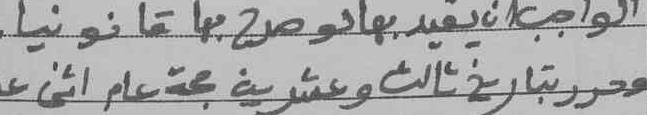 الواجب ان يقيد بها لو صرح بها قانونيا.
وحرر بتاريخ ثالث وعشرين حجة عام اثنى عـ